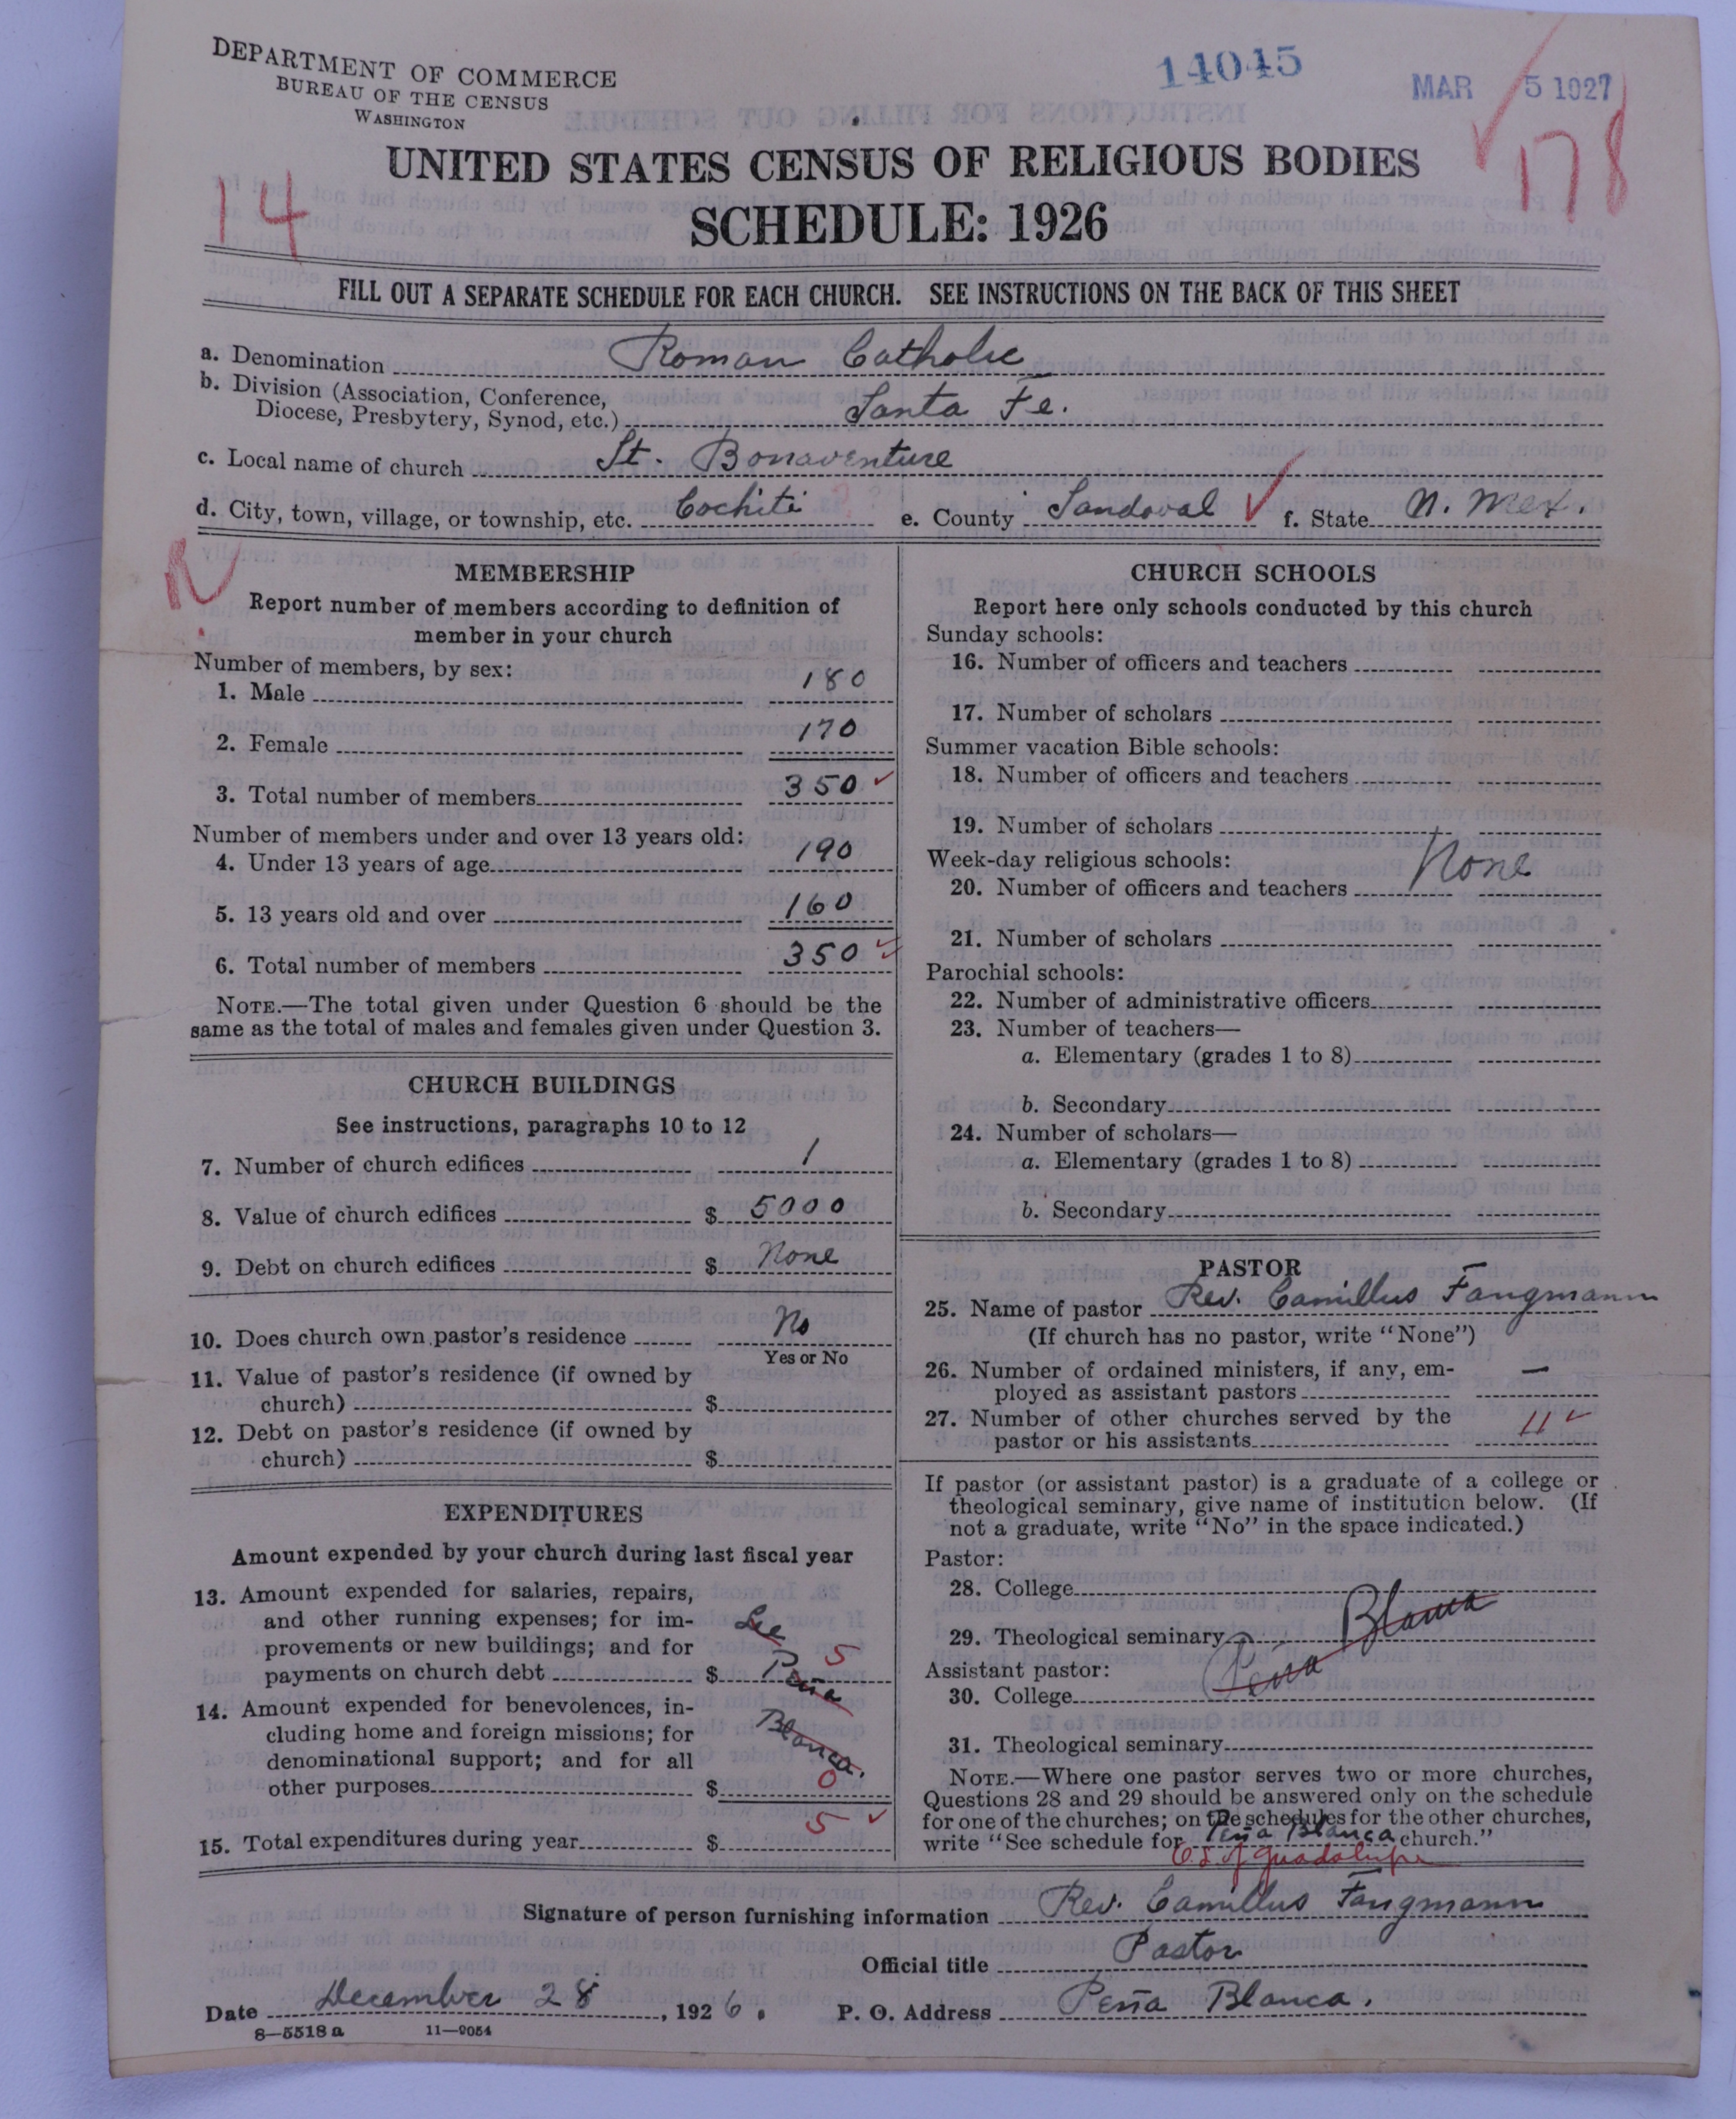 DEPARTMENT OF COMMERCE
BUREAU OF THE CENSUS
WASHINGTON
14045
MAR 5 1927
178
14
UNITED STATES CENSUS OF RELIGIOUS BODIES
SCHEDULE: 1926
FILL OUT A SEPARATE SCHEDULE FOR EACH CHURCH. SEE INSTRUCTIONS ON THE BACK OF THIS SHEET
a. Denomination Roman Catholic
b. Division (Association, Conference,
Diocese, Presbytery, Synod, etc.) Santa Fe.
c. Local name of church St. Bonaventure
d. City, town, village, or township, etc. Cochiti e. County Sandoval ✓ f. State N. Mex.
R
MEMBERSHIP
Report number of members according to definition of
member in your church
Number of members, by sex:
1. Male 180
2. Female 170
3. Total number of members 350 ✓
Number of members under and over 13 years old:
4. Under 13 years of age 190
5. 13 years old and over 160
6. Total number of members 350 ✓
NOTE.—The total given under Question 6 should be the
same as the total of males and females given under Question 3.
CHURCH BUILDINGS
See instructions, paragraphs 10 to 12
7. Number of church edifices 1
8. Value of church edifices $ 5000
9. Debt on church edifices $ None
10. Does church own pastor's residence No
Yes or No
11. Value of pastor's residence (if owned by
church) $
12. Debt on pastor's residence (if owned by
church) $
EXPENDITURES
Amount expended by your church during last fiscal year
13. Amount expended for salaries, repairs,
and other running expenses; for im- See
provements or new buildings; and for 5
payments on church debt $ Peña
14. Amount expended for benevolences, in-
cluding home and foreign missions; for Blanca.
denominational support; and for all
other purposes $ 0
15. Total expenditures during year $ 5 ✓
CHURCH SCHOOLS
Report here only schools conducted by this church
Sunday schools:
16. Number of officers and teachers
17. Number of scholars
Summer vacation Bible schools:
18. Number of officers and teachers
19. Number of scholars
Week-day religious schools: None
20. Number of officers and teachers
21. Number of scholars
Parochial schools:
22. Number of administrative officers
23. Number of teachers—
a. Elementary (grades 1 to 8)
b. Secondary
24. Number of scholars—
a. Elementary (grades 1 to 8)
b. Secondary
PASTOR
25. Name of pastor Rev. Camillus Fangmann
(If church has no pastor, write "None")
26. Number of ordained ministers, if any, em-
ployed as assistant pastors —
27. Number of other churches served by the
pastor or his assistants 11 ✓
If pastor (or assistant pastor) is a graduate of a college or
theological seminary, give name of institution below. (If
not a graduate, write "No" in the space indicated.)
Pastor:
28. College
29. Theological seminary Peña Blanca
Assistant pastor:
30. College
31. Theological seminary
NOTE.—Where one pastor serves two or more churches,
Questions 28 and 29 should be answered only on the schedule
for one of the churches; on the schedules for the other churches,
write "See schedule for Peña Blanca church."
of Guadalupe
Signature of person furnishing information Rev. Camillus Fangmann
Official title Pastor
Date December 28, 1926. P. O. Address Peña Blanca.
8—5518 a 11—9054